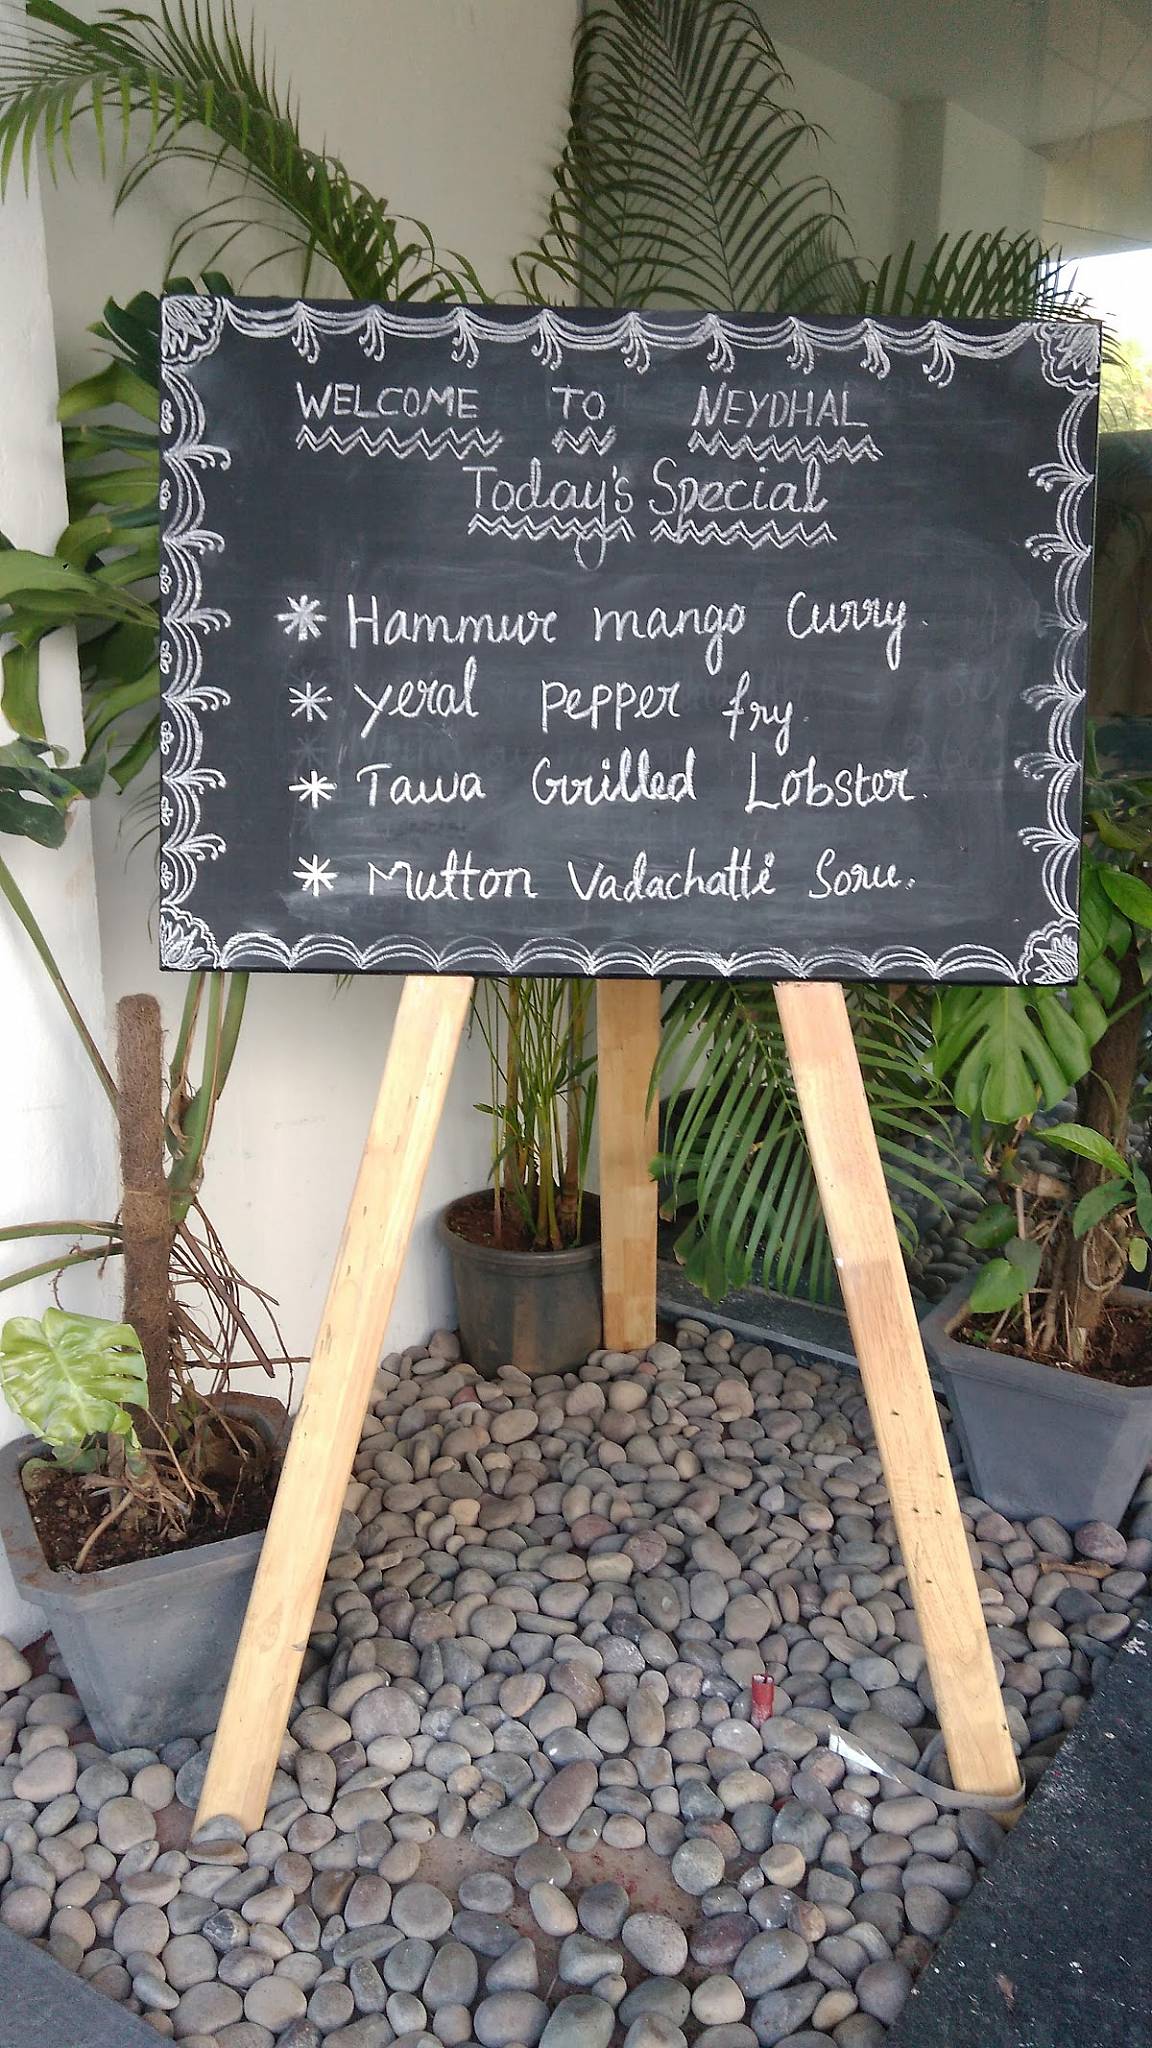 WELCOME TO NEYDHAL
Today's Special
* Hammur mango Curry.
* Yeral pepper fry.
* Tawa Grilled Lobster.
* Mutton Vadachatti Soru.